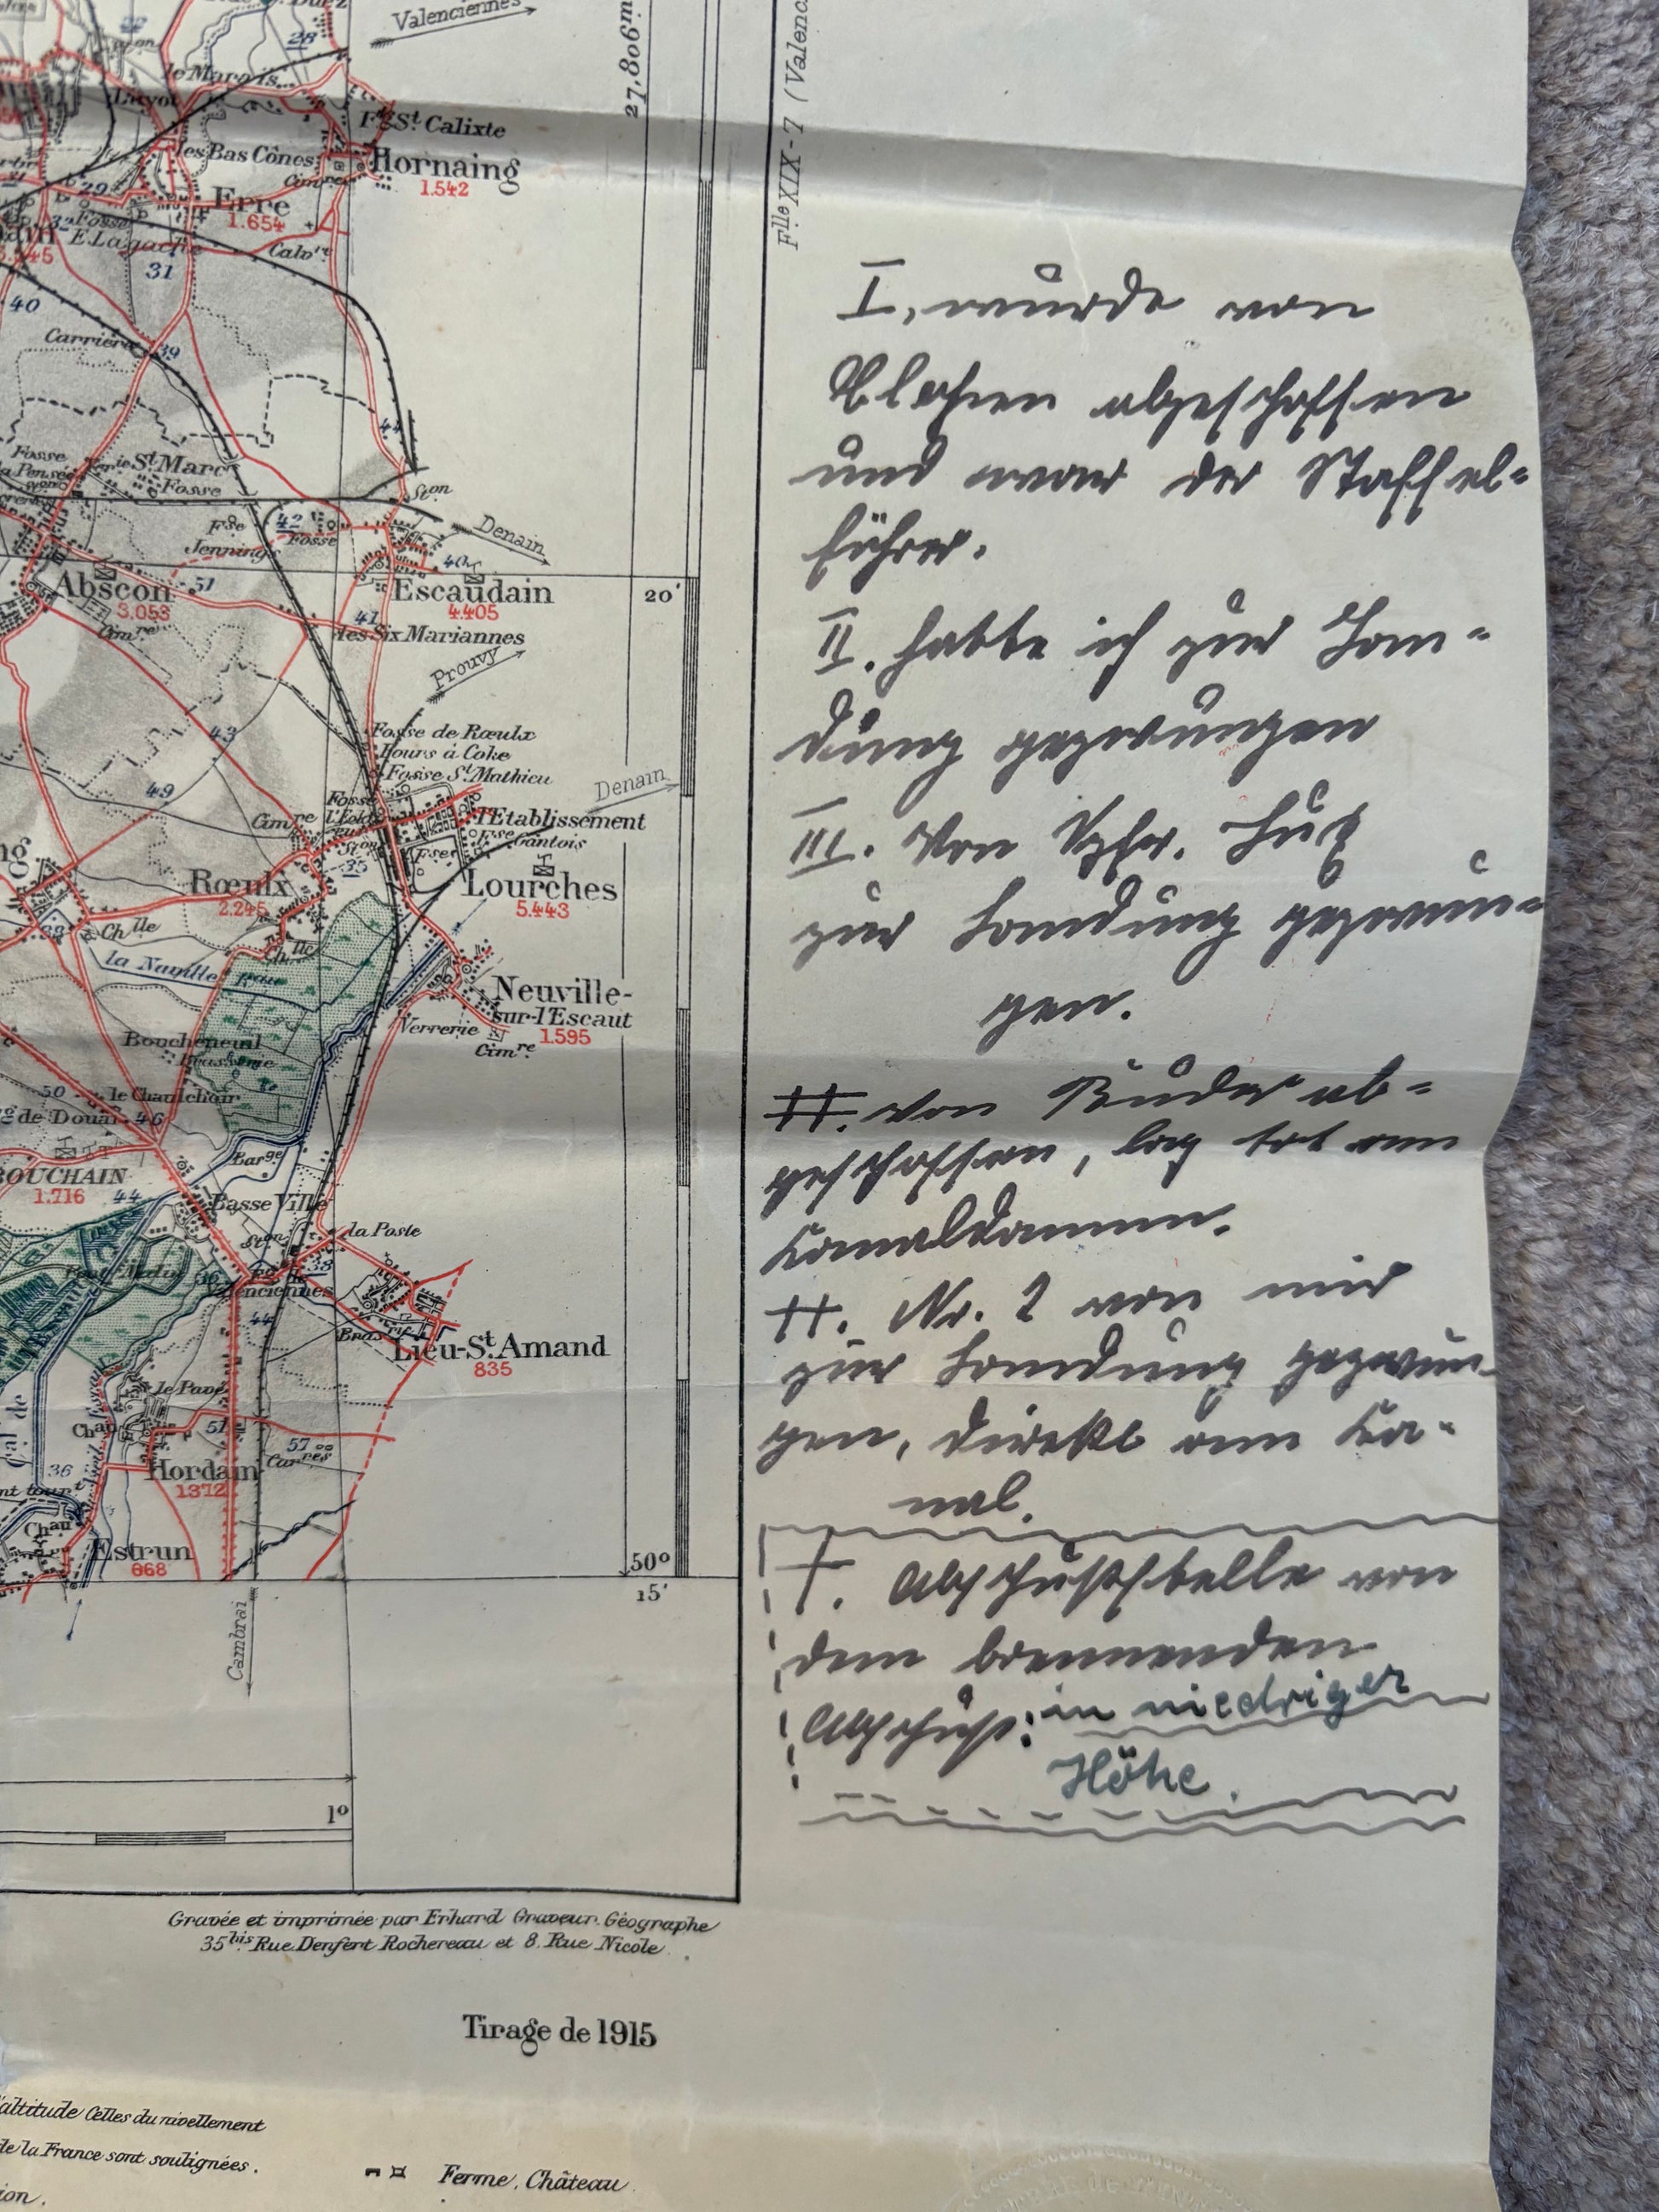 Valenciennes
28
27,806m
Flle XIX-7 (Valenc
le Marais
F. St Calixte
les Bas Cônes
Hornaing
1.542
Cimre
Erre
1.654
29
32
Fosse
E. Lagache
Calvre
31
40
Carrière
39
44
Fosse
la Pensée
St Marc
Fosse
Ston
Fse
Jennings
42
Fosse
Denain
Abscon
3.053
51
Cimre
Escaudain
4.405
20'
41
les Six Mariannes
Prouvy
43
Fosse de Rœulx
Fours à Coke
Fosse St Mathieu
49
Denain
Cimre
Fosse
l'Etablissement
Fse Gantois
Ston
35
Rœulx
2.245
Lourches
5.443
Chlle
Chlle
la Naville
Neuville-
sur-l'Escaut
1.595
Verrerie
Cimre
Boucheneuil
Brasserie
50
le Chaulchoir
de Douai
46
BOUCHAIN
1.716
44
Barge
Basse Ville
Ston
la Poste
38
Valenciennes
44
Lieu-St-Amand
835
le Pavé
Chau
51
57
Carres
36
Hordain
1372
Chau
Estrun
668
50°
15'
Cambrai
1°
I. wurde von
abgeschossen
und war der Staffel-
führer.
II. hatte ich zur Lan-
dung gezwungen
III. Von Vzfw. Lux
zur Landung gezwun-
gen.
von ab-
geschossen, lag tot am
Kanaldamm.
Nr. 2 von mir
zur Landung gezwun-
gen, direkt am Ka-
nal.
†. Abschußstelle von
dem brennenden
Abschuß: in niedriger
Höhe.
Gravée et imprimée par Erhard Graveur-Géographe
35bis Rue Denfert Rochereau et 8, Rue Nicole
Tirage de 1915
altitude Celles du nivellement
de la France sont soulignées.
Ferme, Château